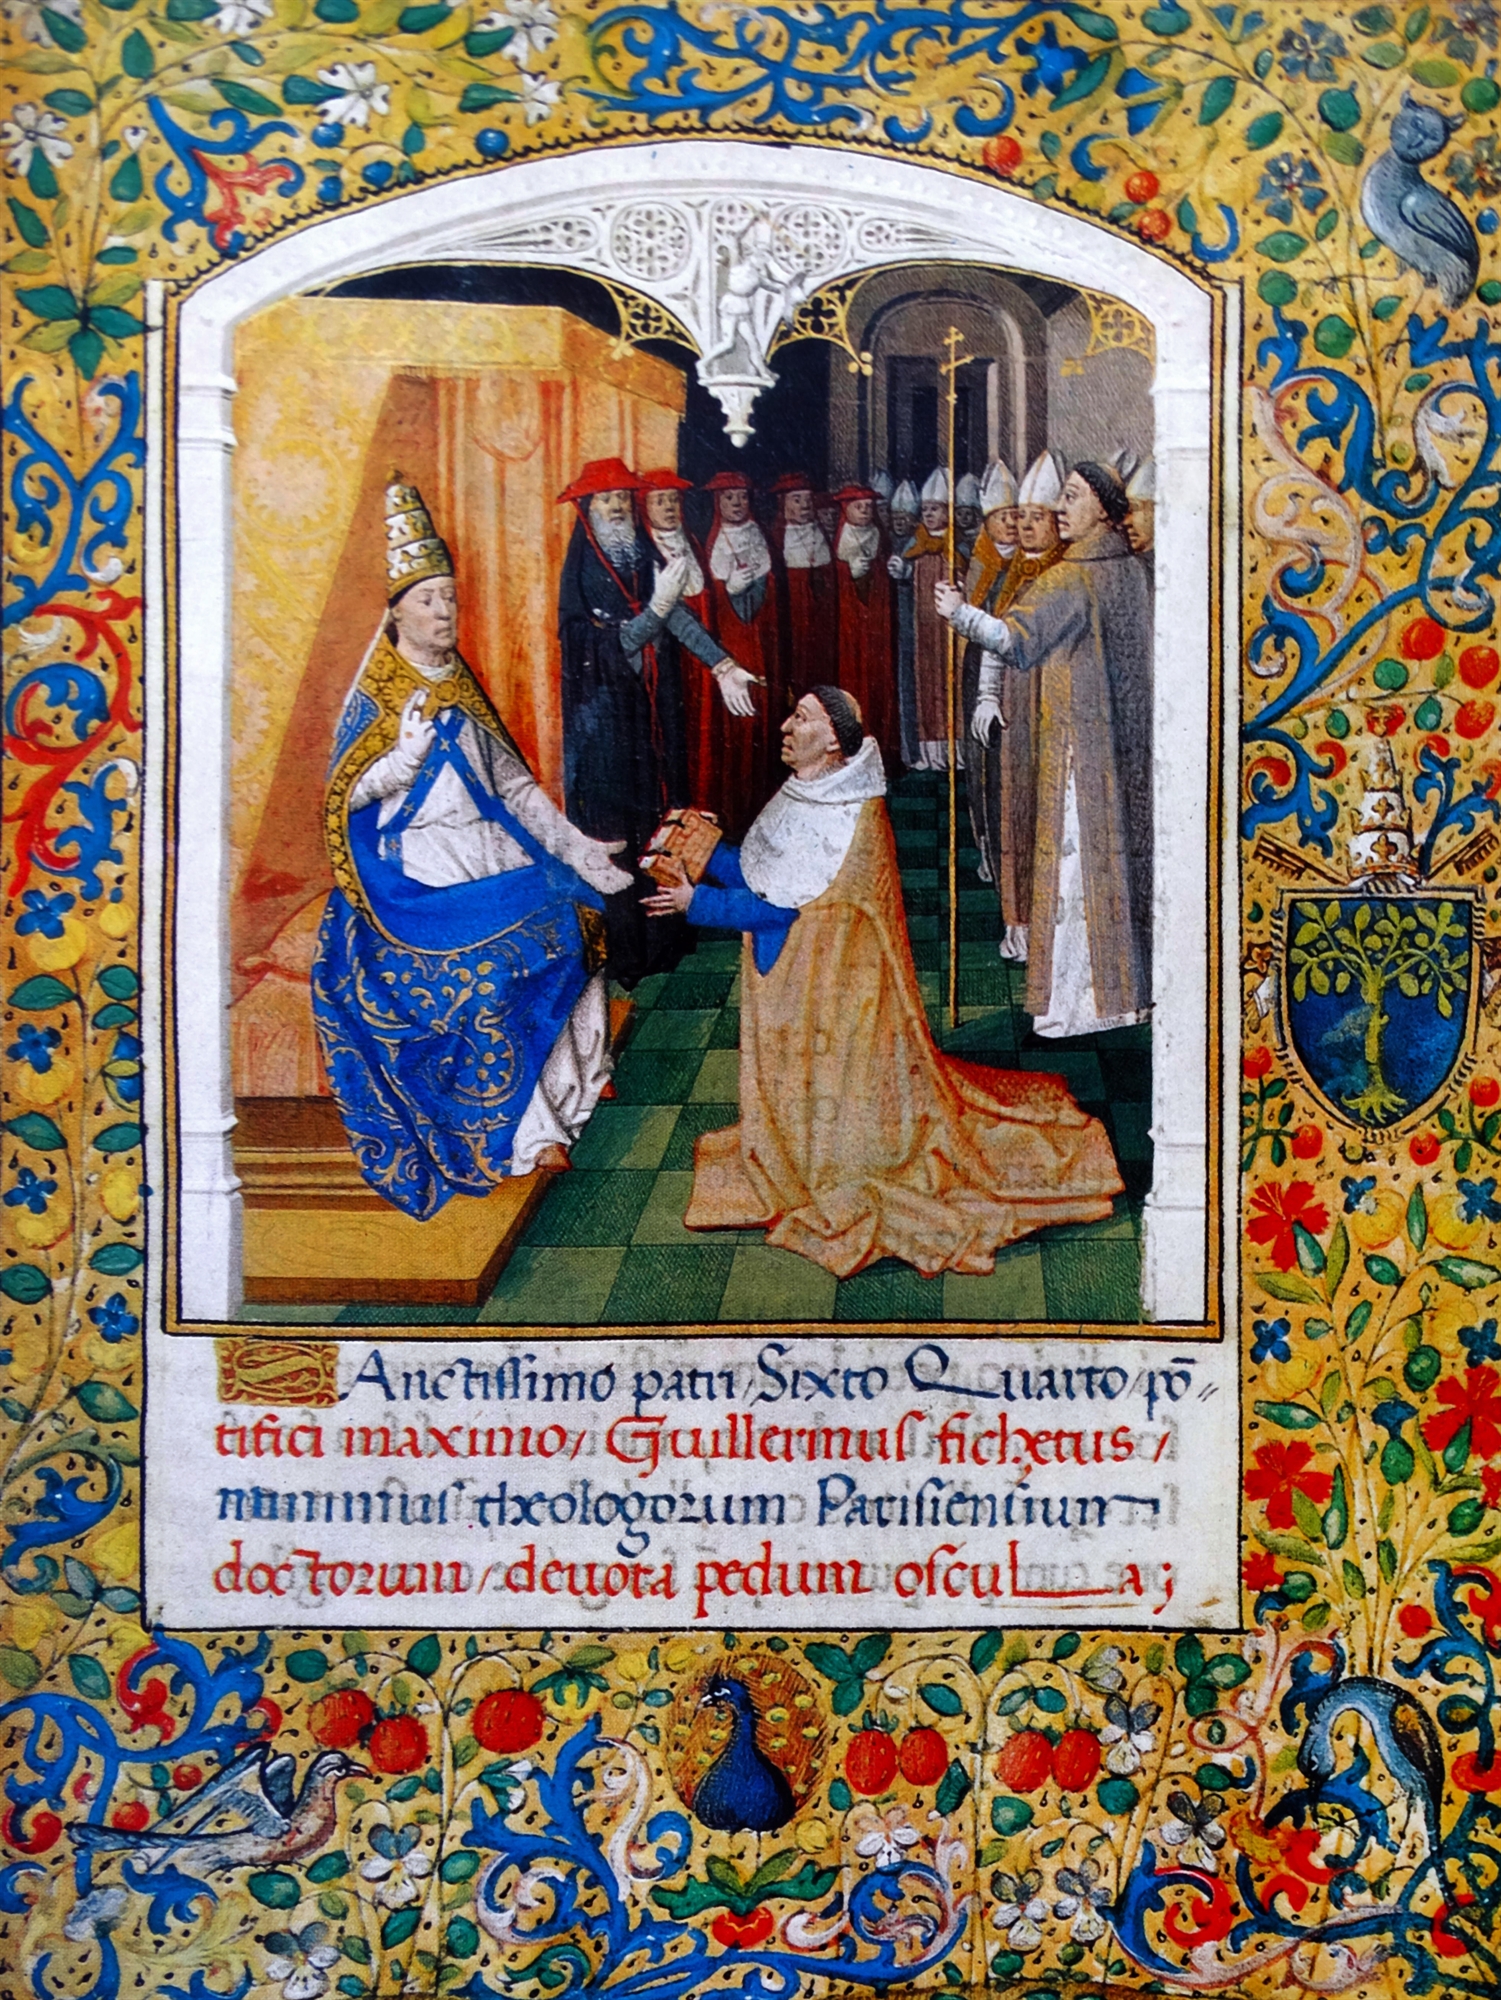 SAnctissimo patri/ Sixto Quarto/ põ〃
tifici maximo/ Guillermus fichetus/
minimus theologorum Parisiensium
doctorum/ deuota pedum oscula;